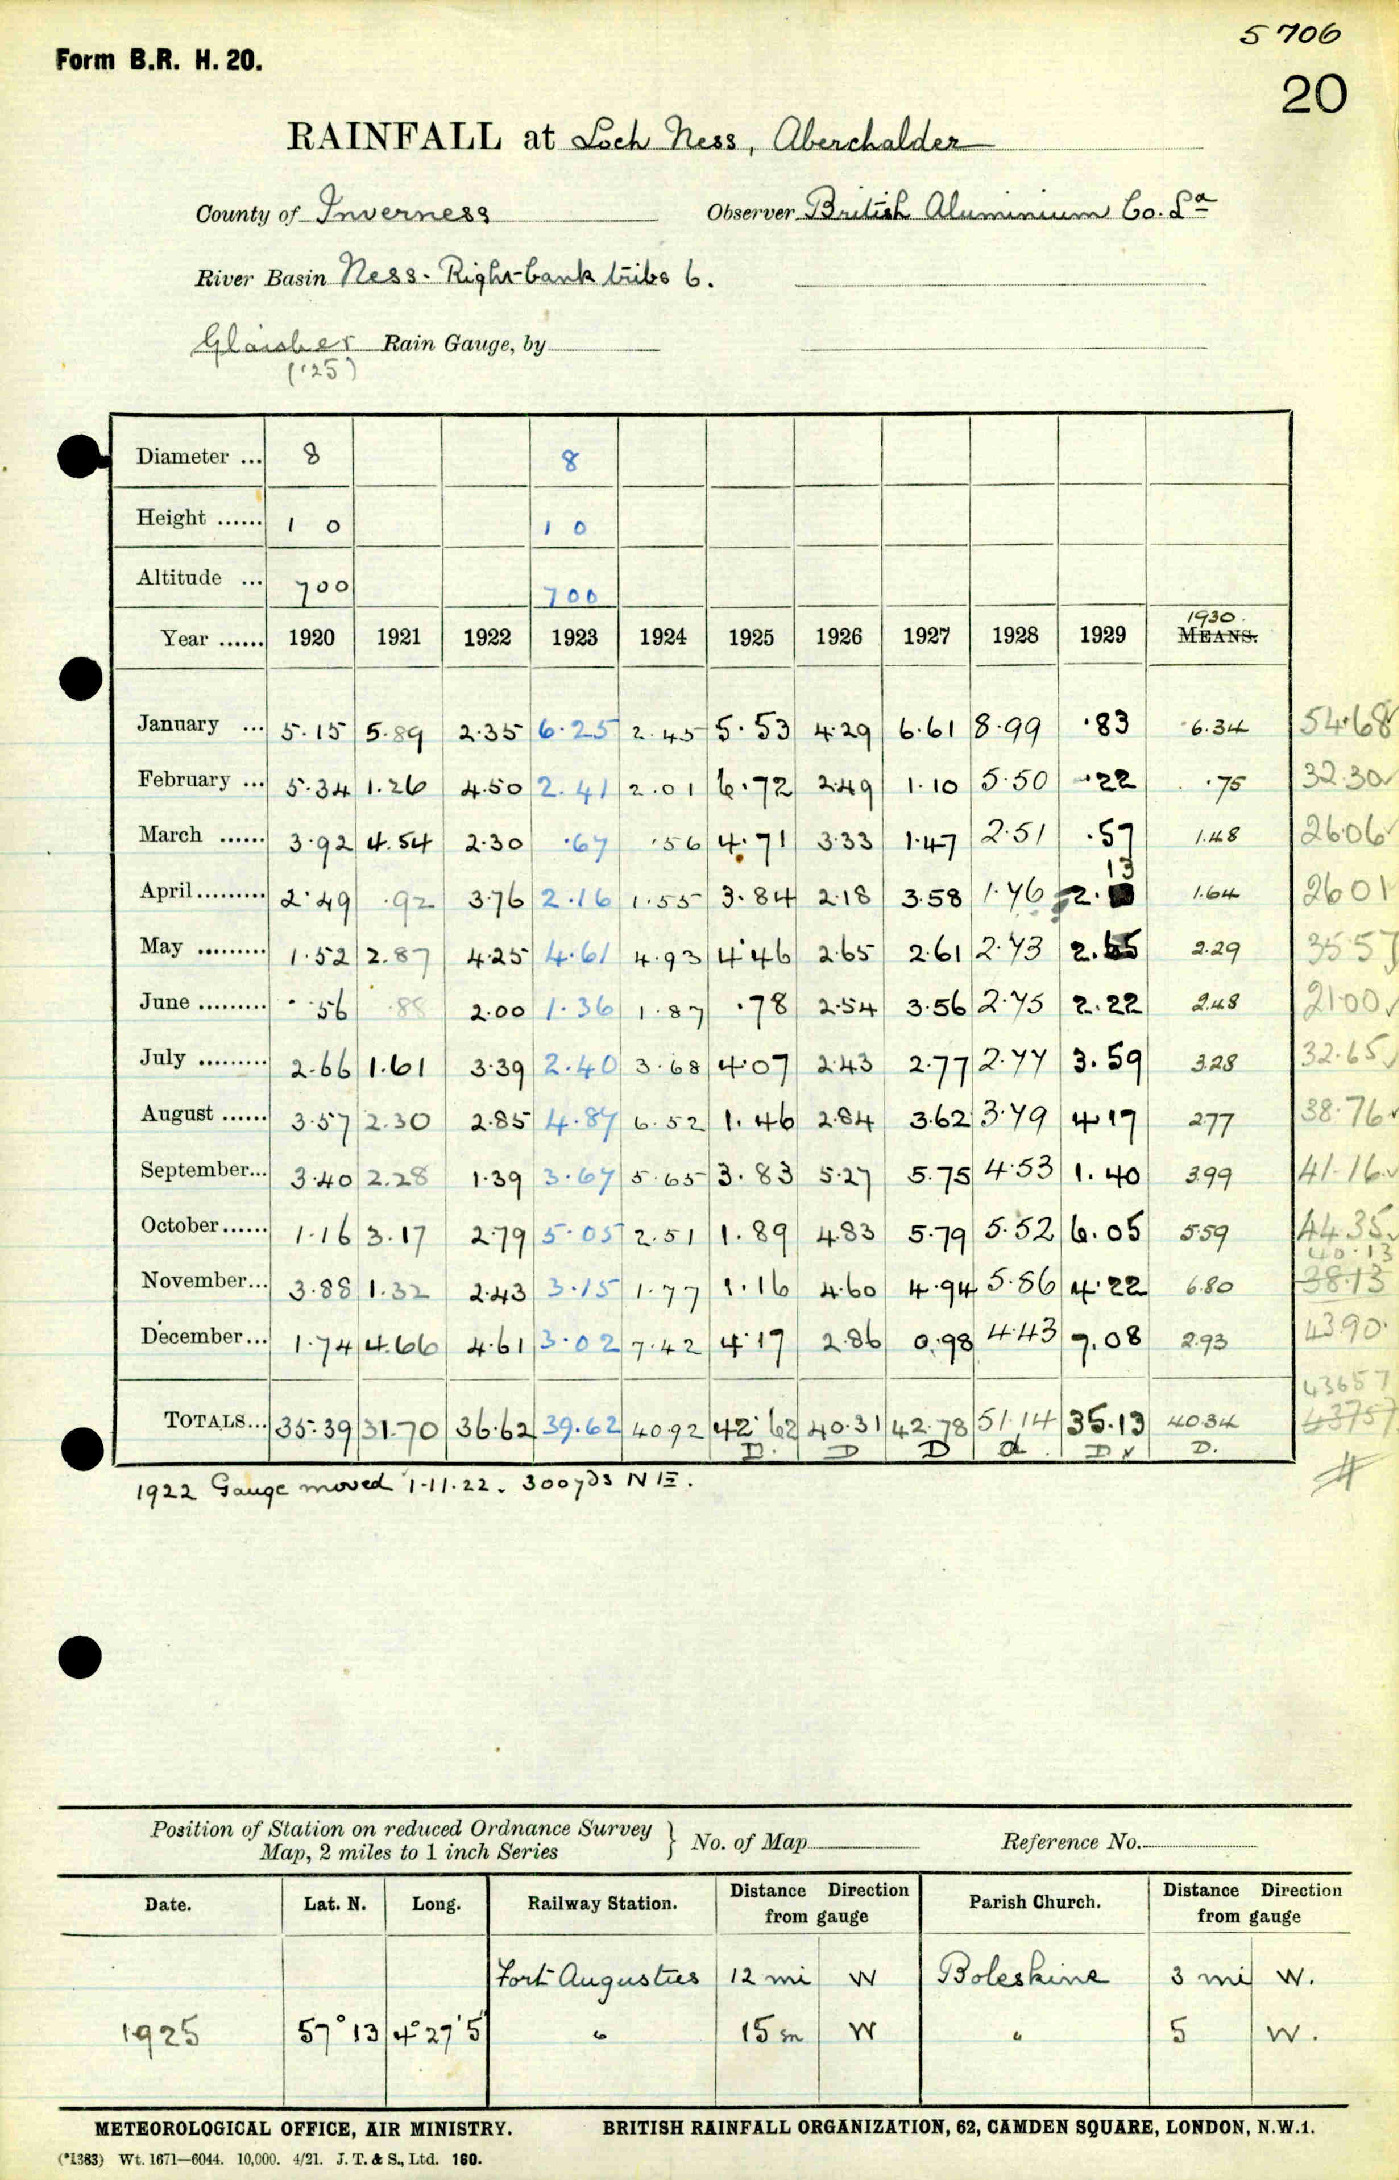 5706
Form B.R. H. 20.
20
RAINFALL at Loch Ness, Aberchalder
County of Inverness Observer British Aluminium Co. Ld
River Basin Ness - Right-bank tribs 6.
Glaisher Rain Gauge, by
('25)
Diameter ... 8 8
Height ...... 1 0 1 0
Altitude ... 700 700
1930.
Year ...... 1920 1921 1922 1923 1924 1925 1926 1927 1928 1929 MEANS.
January ... 5.15 5.89 2.35 6.25 2.45 5.53 4.29 6.61 8.99 .83 6.34 54.68
February ... 5.34 1.26 4.50 2.41 2.01 6.72 2.49 1.10 5.50 .22 .75 32.30
March ...... 3.92 4.54 2.30 .67 .56 4.71 3.33 1.47 2.51 .57 1.48 26.06
April ......... 2.49 .92 3.76 2.16 1.55 3.84 2.18 3.58 1.76 2.13 1.64 26.01
May ......... 1.52 2.87 4.25 4.61 4.93 4.46 2.65 2.61 2.73 2.65 2.29 35.57
June ......... .56 .88 2.00 1.36 1.87 .78 2.54 3.56 2.75 2.22 2.48 21.00
July ......... 2.66 1.61 3.39 2.40 3.68 4.07 2.43 2.77 2.77 3.59 3.28 32.65
August ...... 3.57 2.30 2.85 4.87 6.52 1.46 2.84 3.62 3.79 4.17 2.77 38.76
September... 3.40 2.28 1.39 3.67 5.65 3.83 5.27 5.75 4.53 1.40 3.99 41.16
October...... 1.16 3.17 2.79 5.05 2.51 1.89 4.83 5.79 5.52 6.05 5.59 44.35
40.13
November... 3.88 1.32 2.43 3.15 1.77 1.16 4.60 4.94 5.86 4.22 6.80 38.13
December... 1.74 4.66 4.61 3.02 7.42 4.17 2.86 0.98 4.43 7.08 2.93 43.90
43657
TOTALS... 35.39 31.70 36.62 39.62 40.92 42.62 40.31 42.78 51.14 35.13 40.34 43757
D. D D d D D.
1922 Gauge moved 1.11.22. 300yds NE.
Position of Station on reduced Ordnance Survey
Map, 2 miles to 1 inch Series
No. of Map
Reference No.
Date. Lat. N. Long. Railway Station. Distance Direction from gauge Parish Church. Distance Direction from gauge
Fort Augustus 12 mi W Boleskine 3 mi W.
1925 57°13 4°27'5" " 15 m W " 5 W.
METEOROLOGICAL OFFICE, AIR MINISTRY. BRITISH RAINFALL ORGANIZATION, 62, CAMDEN SQUARE, LONDON, N.W.1.
(*1383) Wt. 1671—6044. 10,000. 4/21. J. T. & S., Ltd. 160.